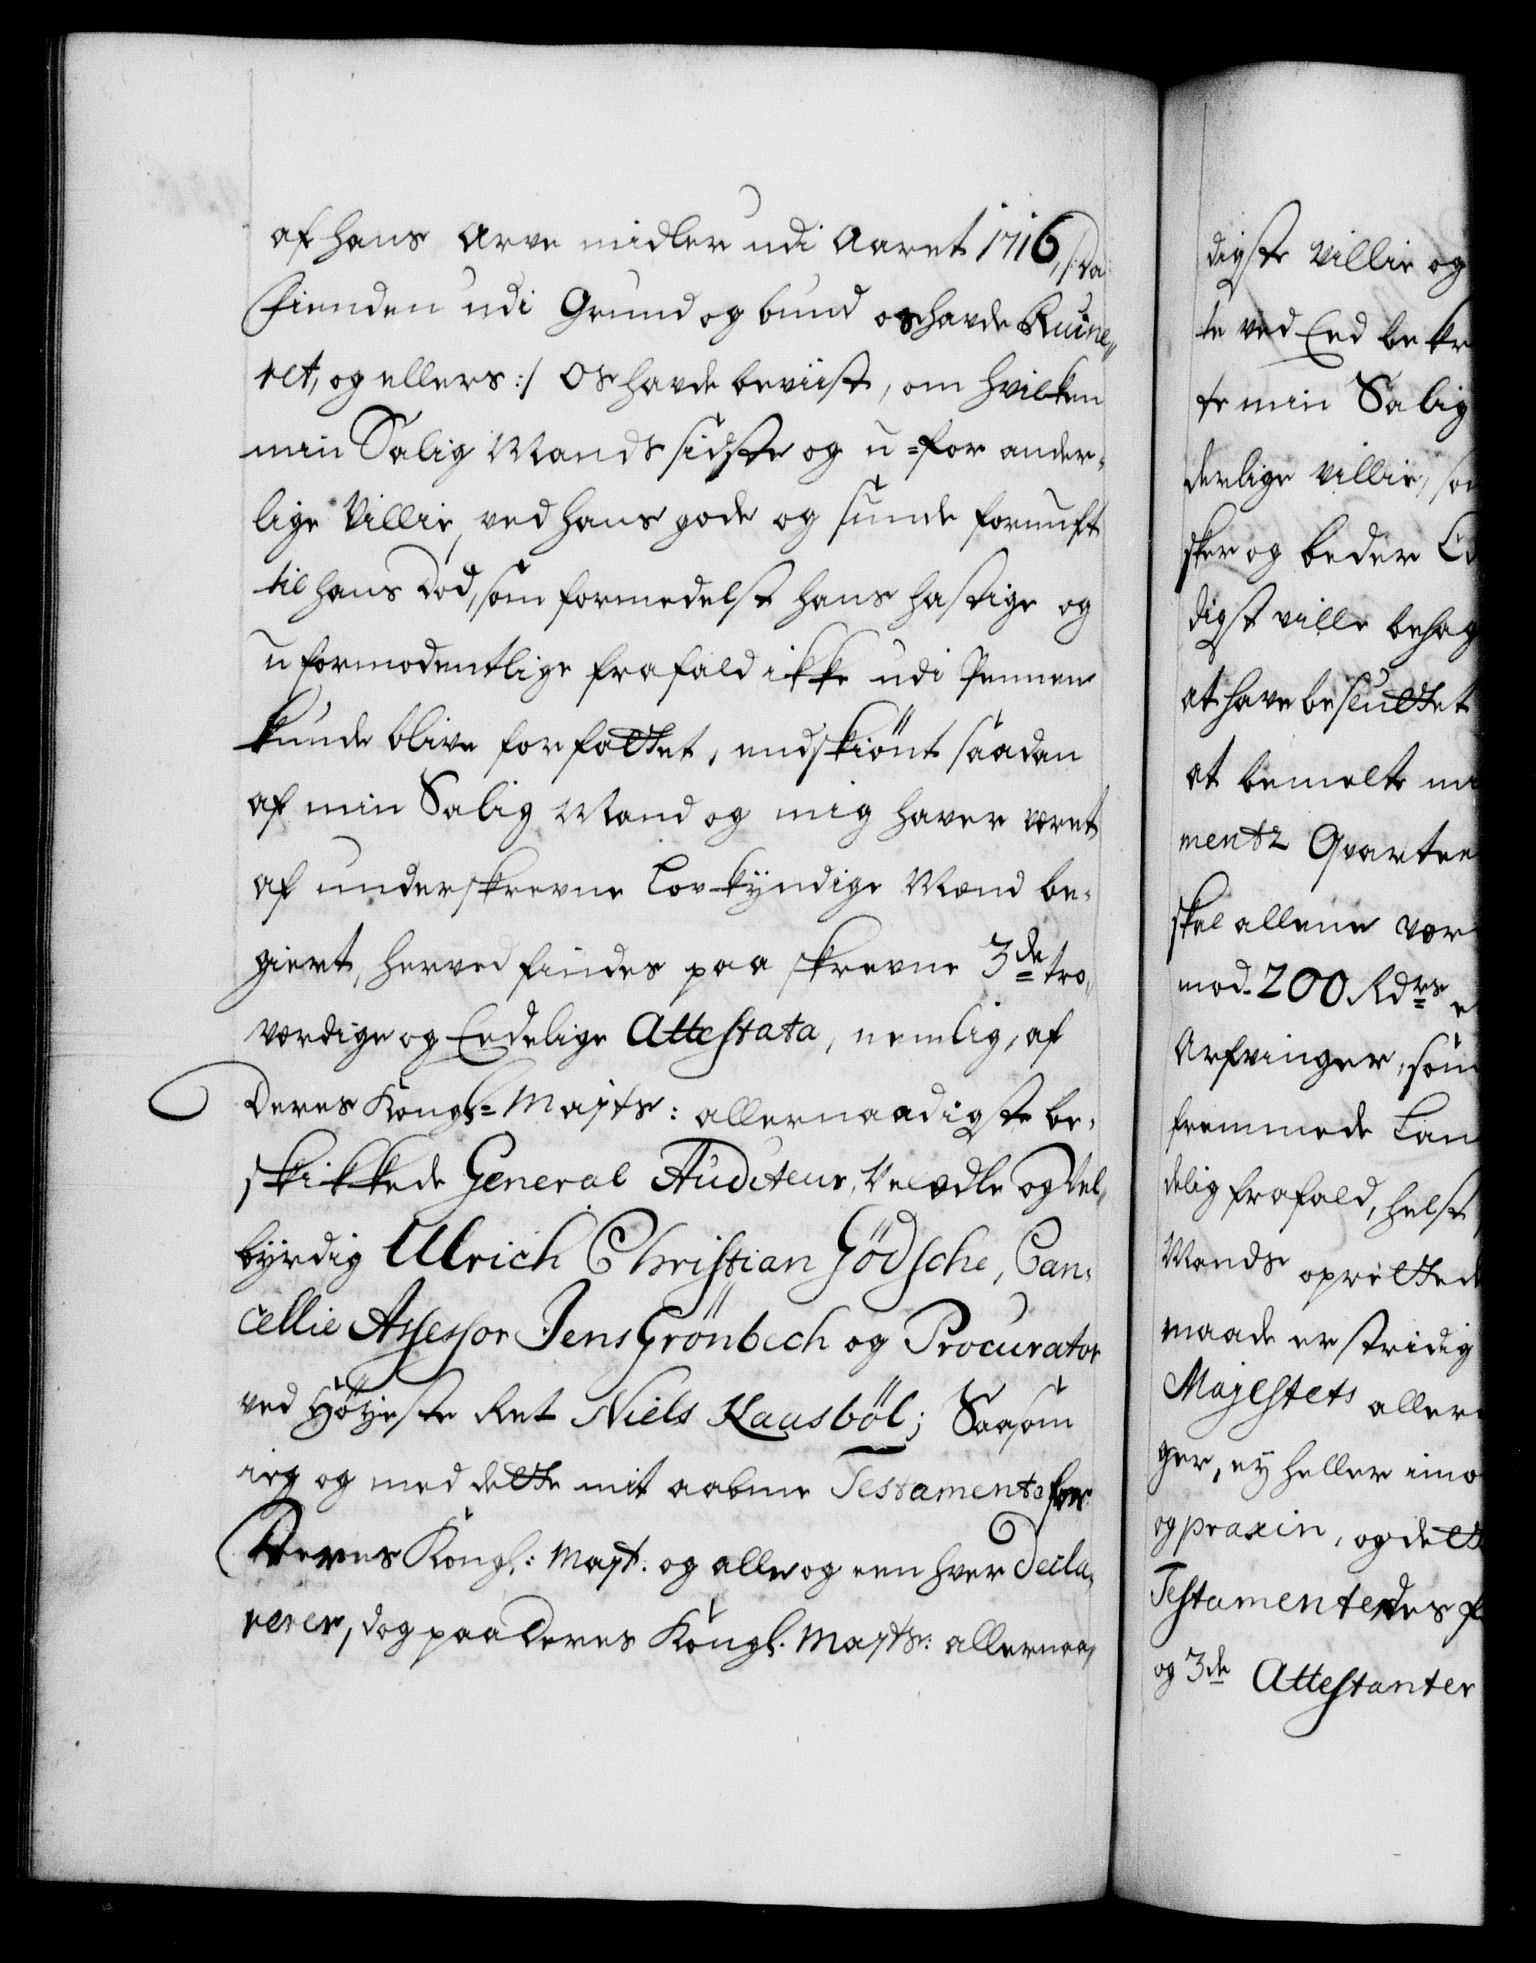 af hans Arve midler udi Aaret 1716, /:da
Fienden udi Grund og bund os havde Ruine„
ret, og ellers :/ Os havde beviist, om hvilken
min Salig Mands sidste og u-for ander„
lige Villie, ved hans gode og sunde fornuft
til hans Död, som formedelst hans hastige og
uformodentlige frafald ikke udi Pennen
kunde blive forfattet, endskiönt saadan
af min Salig Mand og mig haver veret
af underskrevne Lov-kyndige Mænd be„
giert, herved findes paa skrevne 3de tro„
værdige og Eedelige Attestata, nemlig, af
Deres Kongl= Mayts: allernaadigste be„
skikkede General Auditeur, Velædle og Vel„
byrdig Ulrich Christian Gödsche, Can„
cellie Assessor Jens Grönbech og Procurator
ved Höyeste Ret Niels Kaasböl; Saasom
ieg og med dette mit aabne Testamente for
Deres Kongl: Mayt. og alle og een hver Decla„
rerer, dog paa Deres Kongl. Mayts: allernaa„
digste Villie og
te ved Eed bekr
te min Salig
derlige Villie, som
sker og beder
digst ville behag
at have besluttet
at bemelte mi
mentz Qvarteer
skal allene vær
mod 200 Rdrs
Arfvinger, som
fremmede Lan
delig frafald, helst
Mands oprettede
maade er stridig
Majestets aller
ger, ey heller imo
og praxin, og dett
Testamentes
og 3de Attestanter